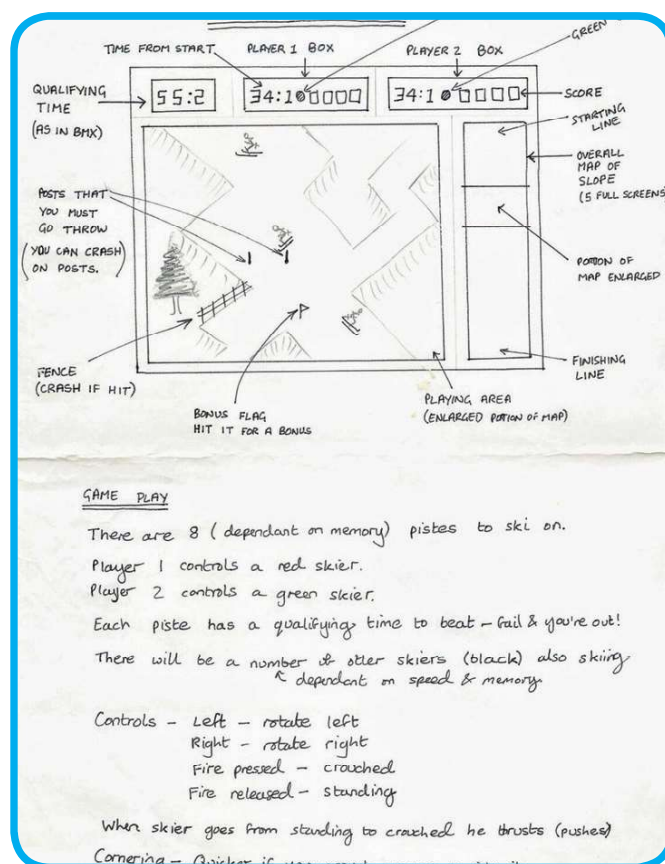 GREEN
TIME FROM START
PLAYER 1 BOX
PLAYER 2 BOX
QUALIFYING
TIME
(AS IN BMX)
55:2
34:1
34:1
SCORE
STARTING
LINE
OVERALL
MAP OF
SLOPE
(5 FULL SCREENS)
POSTS THAT
YOU MUST
GO THROW
(YOU CAN CRASH
ON POSTS.)
POTION OF
MAP ENLARGED
FENCE
(CRASH IF HIT)
BONUS FLAG
HIT IT FOR A BONUS
PLAYING AREA
(ENLARGED POTION OF MAP)
FINISHING
LINE
GAME PLAY
There are 8 (dependant on memory) pistes to ski on.
Player 1 controls a red skier.
Player 2 controls a green skier.
Each piste has a qualifying time to beat – fail & you're out!
There will be a number of other skiers (black) also skiing
dependant on speed & memory.
Controls – Left – rotate left
Right – rotate right
Fire pressed – crouched
Fire released – standing
When skier goes from standing to crouched he thrusts (pushes)
Cornering – Quicker if you